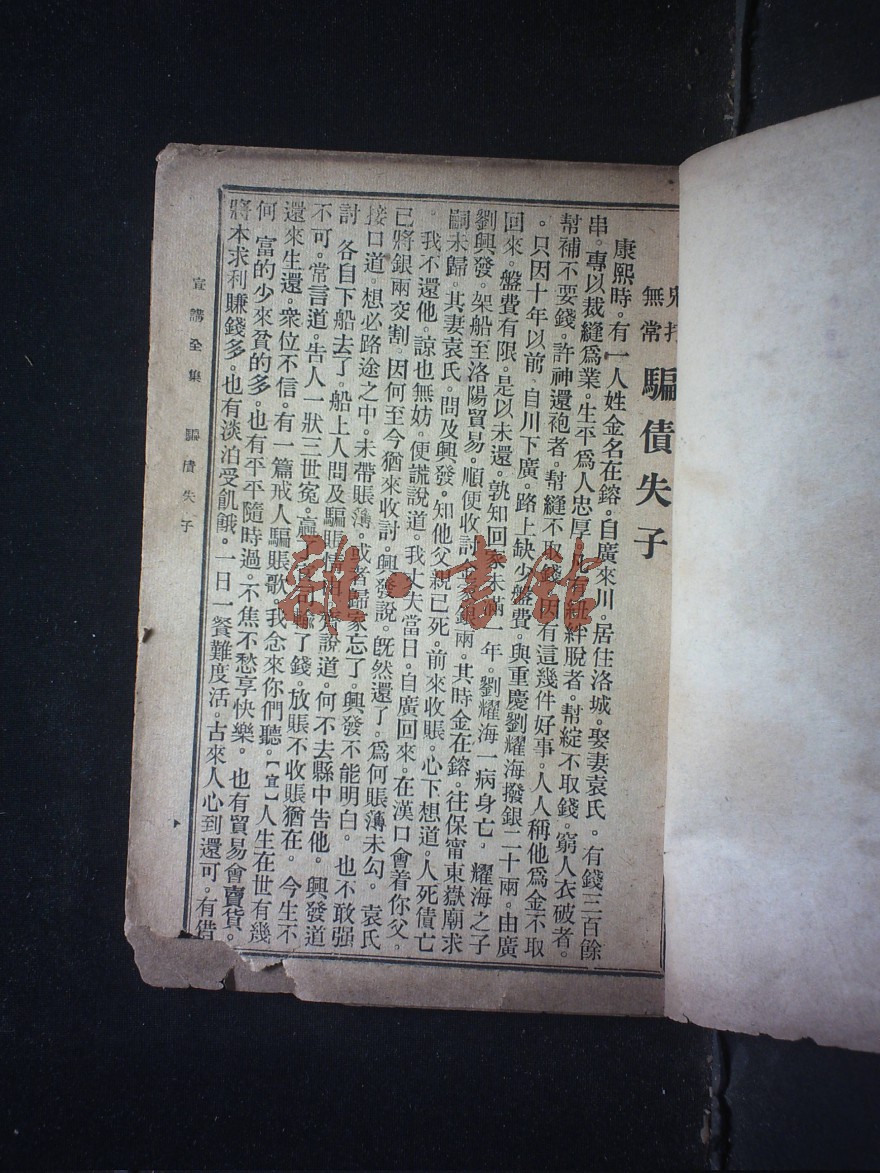 鬼打無常 騙債失子
康熙時。有一人姓金名在鎔。自廣來川。居住洛城。娶妻袁氏。有錢三百餘
串。專以裁縫爲業。生平爲人忠厚。凡有紐絆脫者。幫綻不取錢。窮人衣破者。
幫補不要錢。許神還袍者。幫縫不取錢。因有這幾件好事。人人稱他爲金不取
。只因十年以前。自川下廣。路上缺少盤費。與重慶劉耀海撥銀二十兩。由廣
回來。盤費有限。是以未還。孰知回家未滿一年。劉耀海一病身亡。耀海之子
劉興發。架船至洛陽貿易。順便收討金家銀兩。其時金在鎔。往保甯東嶽廟求
嗣未歸。其妻袁氏。問及興發。知他父親已死。前來收賬。心下想道。人死債亡
。我不還他。諒也無妨。便謊說道。我丈夫當日。自廣回來。在漢口會着你父。
已將銀兩交割。因何至今猶來收討。興發說。旣然還了。爲何賬薄未勾。袁氏
接口道。想必路途之中。未帶賬薄。或者歸家忘了。興發不能明白。也不敢强
討。各自下船去了。船上人問及騙賬情由。齊說道。何不去縣中告他。興發道
不可。常言道。告人一狀三世冤。贏了官司輸了錢。放賬不收賬猶在。今生不
還來生還。衆位不信。有一篇戒人騙賬歌。我念來你們聽。【宣】人生在世有幾
何。富的少來貧的多。也有平平隨時過。不焦不愁享快樂。也有貿易會賣貨。
將本求利賺錢多。也有淡泊受飢餓。一日一餐難度活。古來人心到還可。有借
宣講全集 騙債失子
雜·書館